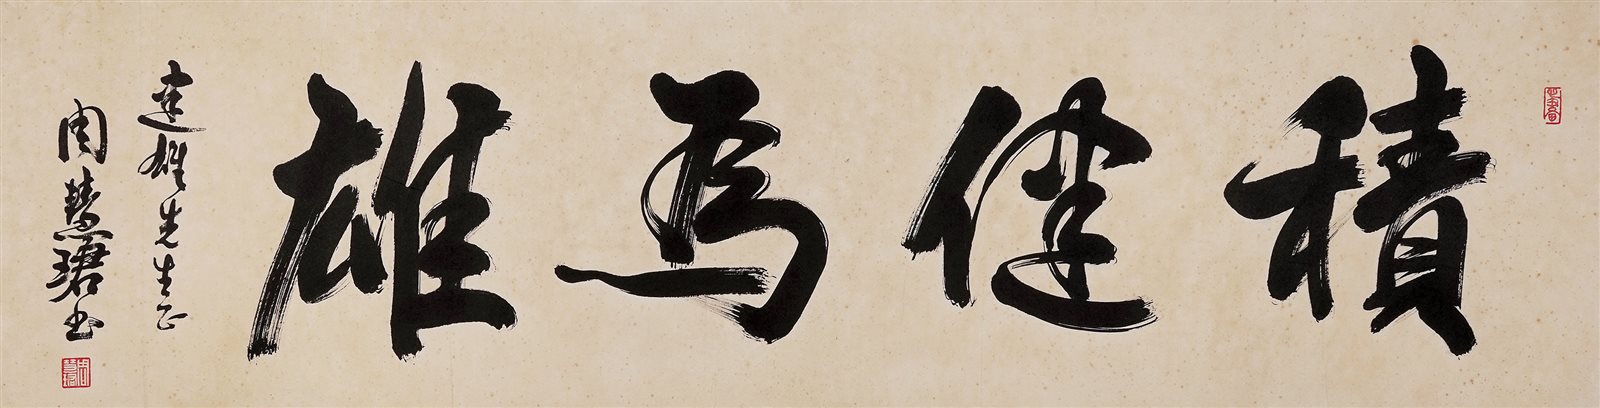 積健為雄
達雄先生正
周慧珺书